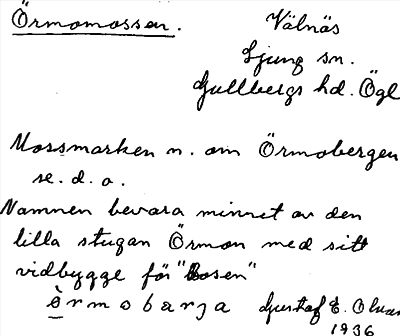 Örmomossen.
Välnäs
Ljung sn.
Gullbergs hd. Ögl
Mossmarken n. om Örmobergen
se. d. o.
Namnen bevara minnet av den
lilla stugan Örmon med sitt
vidbygge för "Bosen"
ö̀rmobarja Gustaf E. Olsson
1936